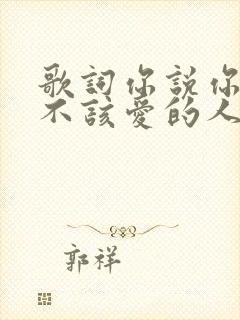 歌詞你說你
不該愛的人
郭祥